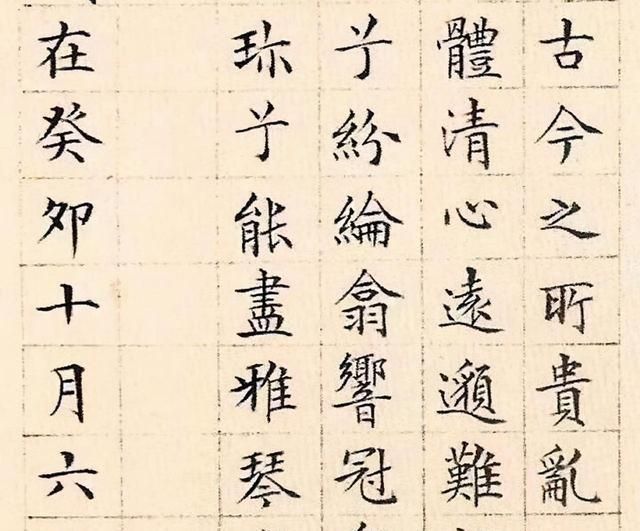 古今之所貴亂
體清心遠邈難
兮紛綸翕響冠
珎兮能盡雅琴
在癸夘十月六